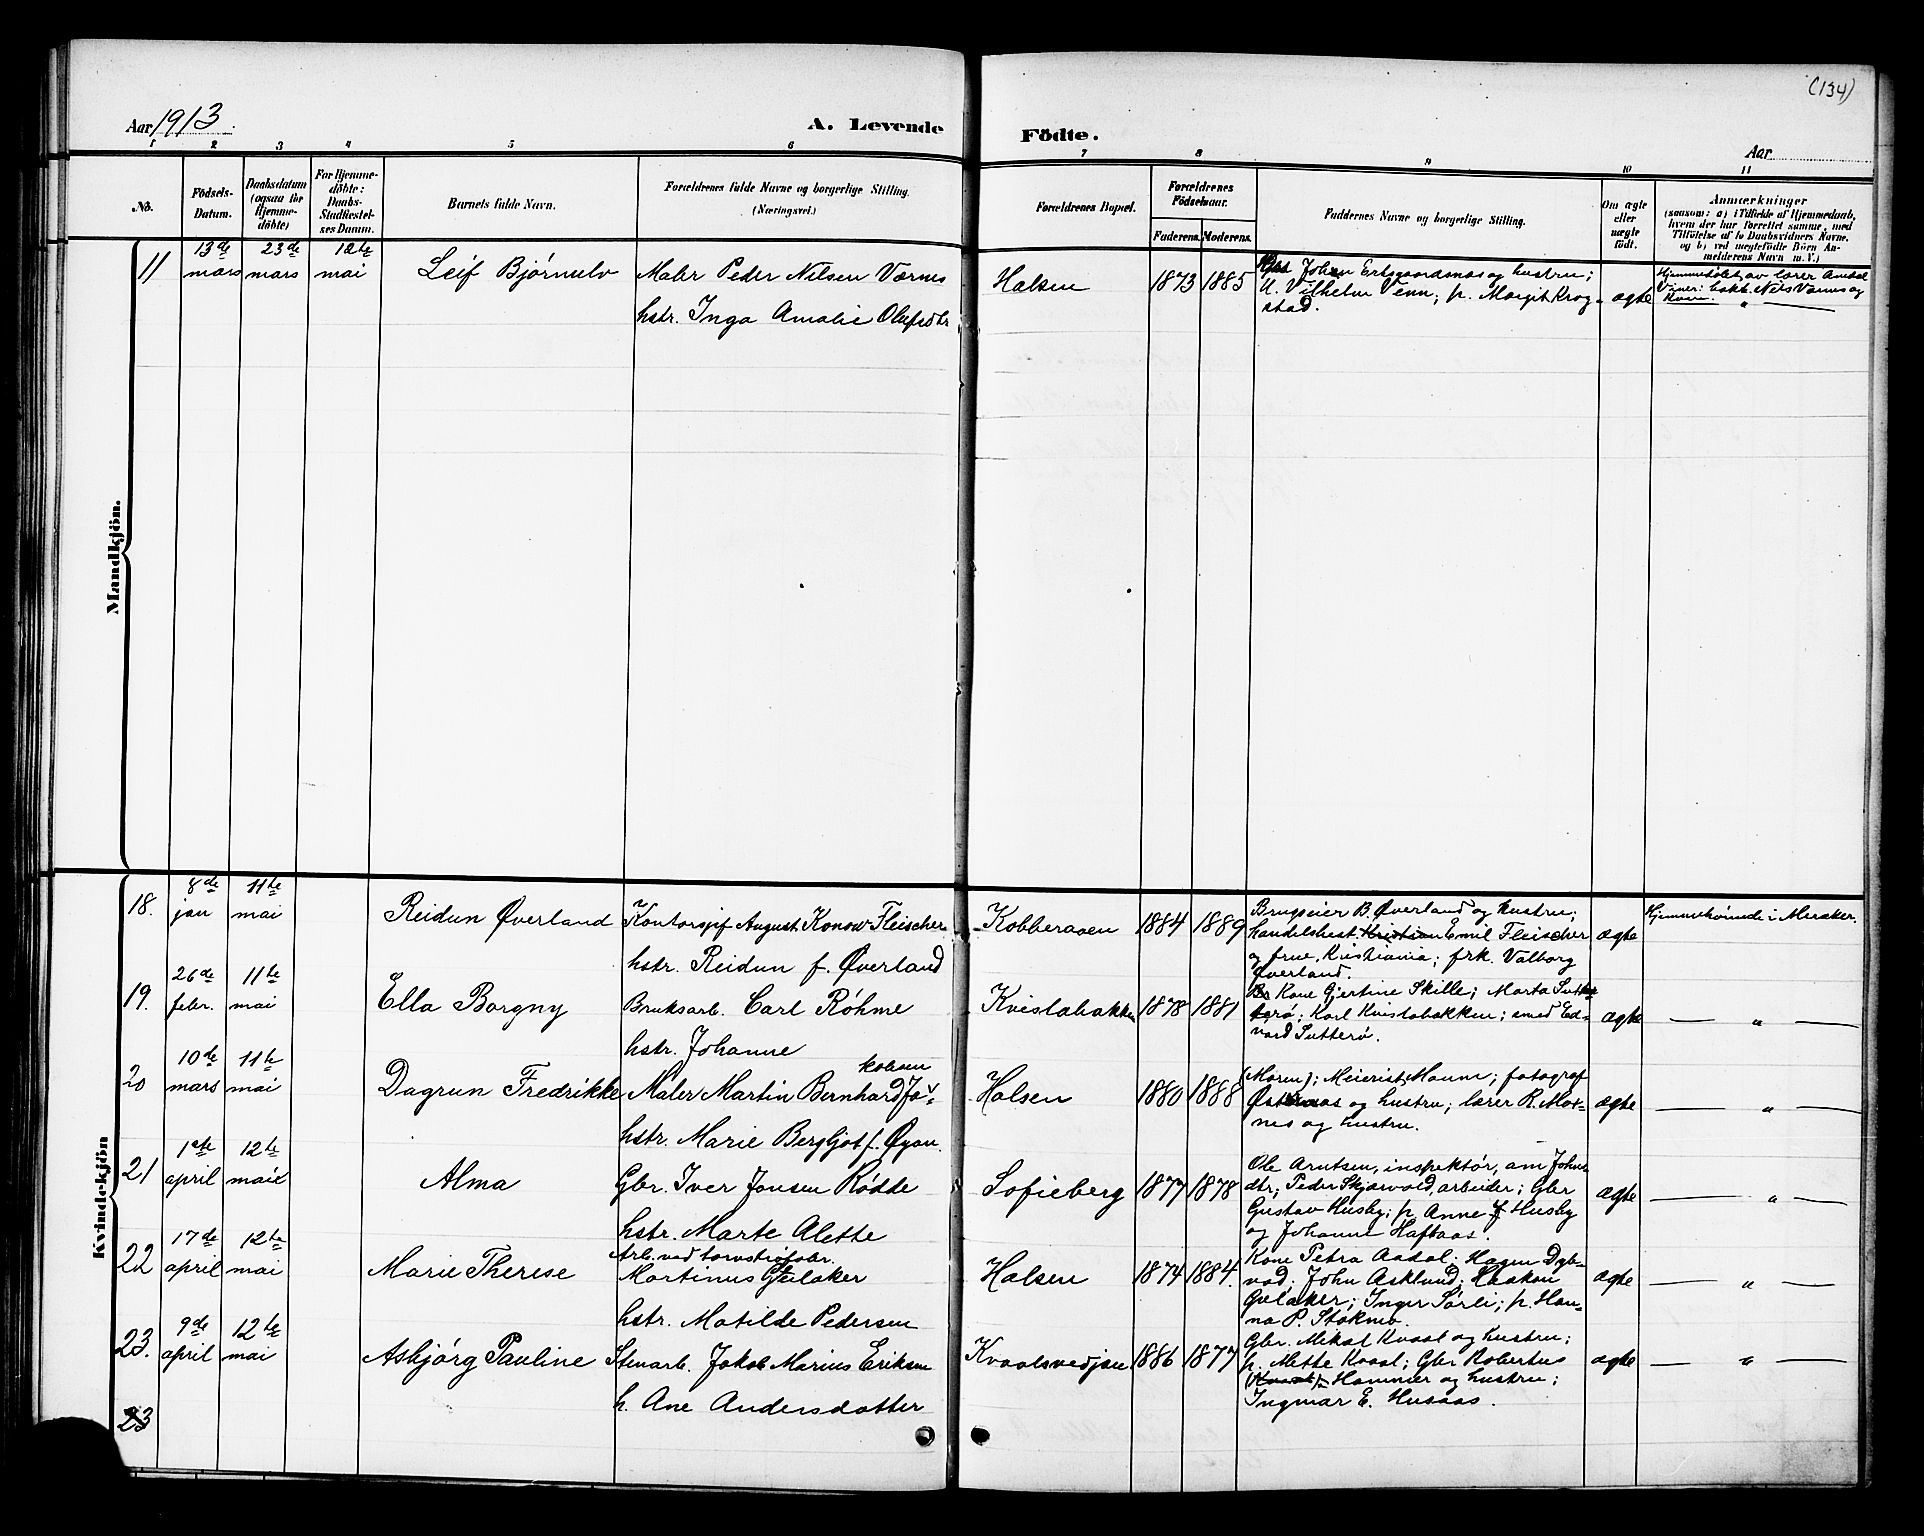 (134)
Aar 1913
A. Levende
Födte.
Aar
1 2 3 4 5 6 7 8 9 10 11
No.
Födsels-
Datum.
Daabsdatum
(ogsaa for
Hjemme-
döbte)
For Hjemme-
döbte:
Daabs-
Stadfæstel-
ses Datum.
Barnets fulde Navn.
Forældrenes fulde Navne og borgerlige Stilling.
(Næringsvei.)
Forældrenes Bopæl.
Forældrenes
Födselsaar.
Faderens. Moderens.
Faddernes Navne og borgerlige Stilling.
Om ægte
eller
uægte
födt.
Anmærkninger
(saasom: a) i Tilfælde af Hjemmedaab,
hvem der har forrettet samme, med
Tilföielse af to Daabsvidners Navne,
og b) ved uægtefödte Börn An-
melderens Navn m. V.)
Mandkjön.
11
13de
mars
23de
mars
12te
mai
Leif Bjørnulv
Maler Peder Nilsen Værnes
hstr. Inga Amalie Olufsdtr
Halsen
1873 1885
Johan Ertsgaardsmos og hustru;
U. Vilhelm Venn; p. Margit Krog-
stad.
ægte
Hjemmedøbt av lærer Amdal
Viner: bakb. Nils Værnes og
Kone.
Kvindekjön
18.
8de
jan
11te
mai
Reidun Øverland
Kontorsjef August Konow Fleischer
hstr. Reidun f. Øverland
Kobberaaen
1884 1889
Brugseier B. Øverland og hustru;
handelsbest. Kristian Emil Fleischer
og frue, Kristiania; frk. Valborg
Øverland.
ægte
Hjemmehörende i Meraker.
19.
26de
febr.
11te
mai
Ella Borgny
Bruksarb. Carl Röhme
hstr. Johanne
Kvistabakken
1878 1881
Kone Gjertine Skille; Marta Sutte-
rø; Karl Kvistabakken; smed Ed-
vard Sutterø.
ægte
— „ —
20
10de
mars
11te
mai
Dagrun Fredrikke
Maler Martin Bernhard Ja-
kobsen
hstr. Marie Bergljot f. Øyan.
Halsen
1880 1888
(Moren); Meierist Maum; fotograf
Østeraas og hustru; lærer R. Mos-
nes og hustru.
ægte
— „ —
21
1ste
april
12te
mai
Alma
Gbr. Iver Jonsen Rödde
hstr. Marte Alette
Sofieberg
1877 1878
Ole Arntsen, inspektör, am Johns-
dtr; Peder Skjærvold, arbeider; Gbr
Gustav Husby; p. Anne J Husby
og Johanne Haftaas.
ægte
— „ —
22
17de
april
12te
mai
Marie Therese
Arb. ved torvströfabr.
Martinus Gulaker
hstr. Matilde Pedersen
Halsen
1874 1884.
Kone Petra Aadal; Hagen Dyb-
vad; John Asklund; Haakon
Gulaker; Inger Sörli; p. Han-
na P. Stokmo.
ægte
— „ —
23.
9de
april
12te
mai
Asbjörg Pauline
Stenarb. Jakob Marius Eriksen
h. Ane Andersdatter
Kvaalsvedjen
1886 1877
Gbr. Mikal Kvaal og hustru;
p. Mette Kvaal; Gbr Robertus
Hammer og hustru;
Ingmar E. Husaas.
ægte
— „ —
23